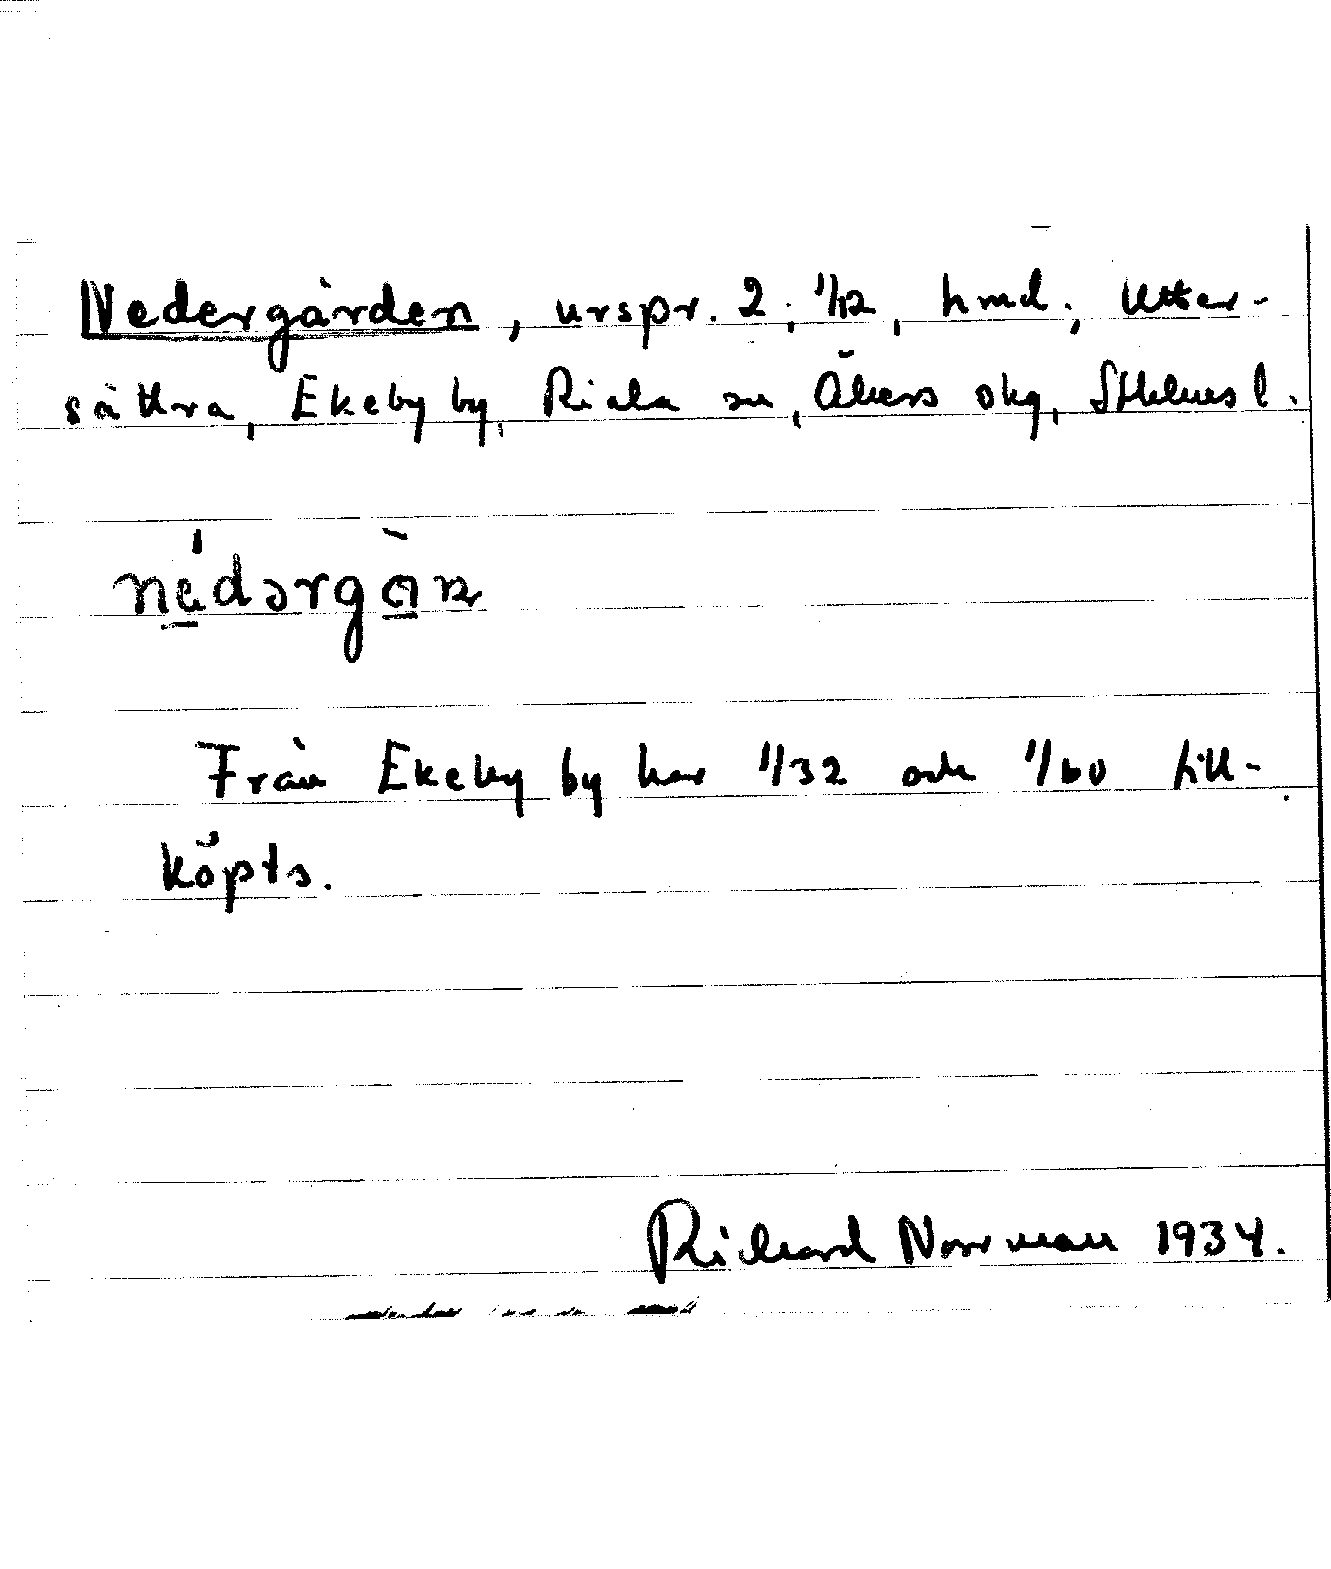 Nedergården, urspr. 2; 1/12, hmd; Utter-
säthra, Ekeby by, Riala sn, Åkers skg, Sthlms l.
nédərgàṇ
Från Ekeby by har 1/32 och 1/60 till-
köpts.
Richard Norrman 1934.